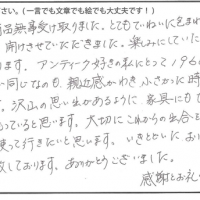 さい。(一言でも文章でも絵でも大丈夫です！)
品無事受け取りました。とてもていねいに包まれ
開けさせていただきました。楽しみにしていた
ます。アンティーク好きの私にとって196
同じなのも、親近感がわき ふさかった時
す。沢山の思い出があるように 家具にもて
っていると思います。大切に これからの出合を
使って行きたいと思います。いきとどいた お
致しております。ありがとうございました。
感謝とお礼